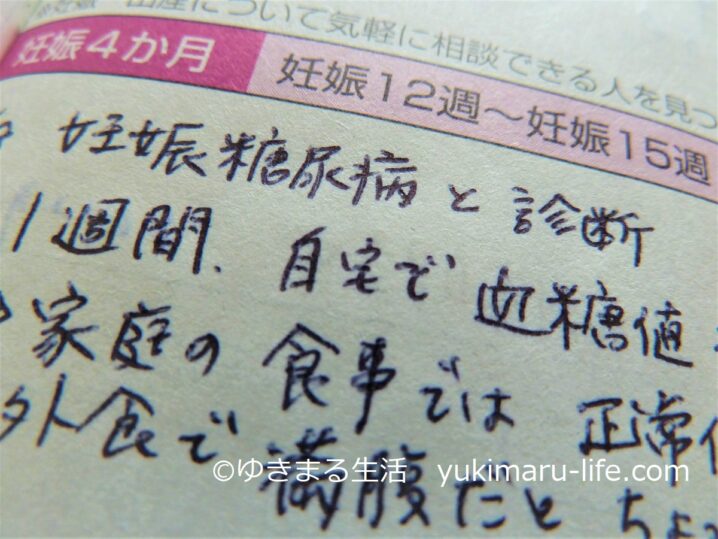 出産について気軽に相談できる人を見つ
妊娠4か月 妊娠12週～妊娠15週
妊娠糖尿病と診断
1週間、自宅で血糖値
家庭の食事では正常
外食で満腹だとちょ
©ゆきまる生活 yukimaru-life.com